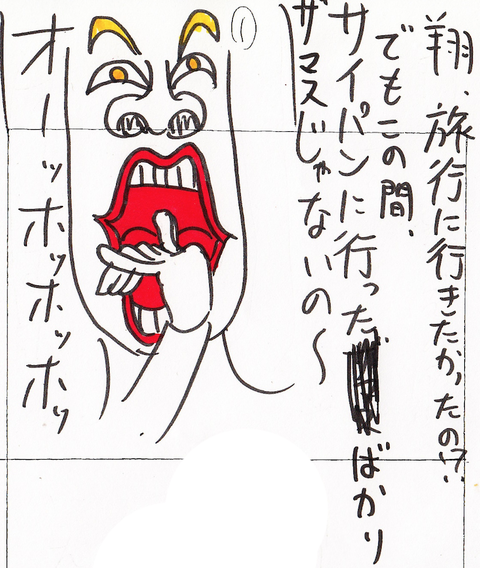 翔、旅行に行きたかったの!?
でもこの間、
サイパンに行ったばかり
ザマスじゃないの〜
オーッホホッホッホッ
①